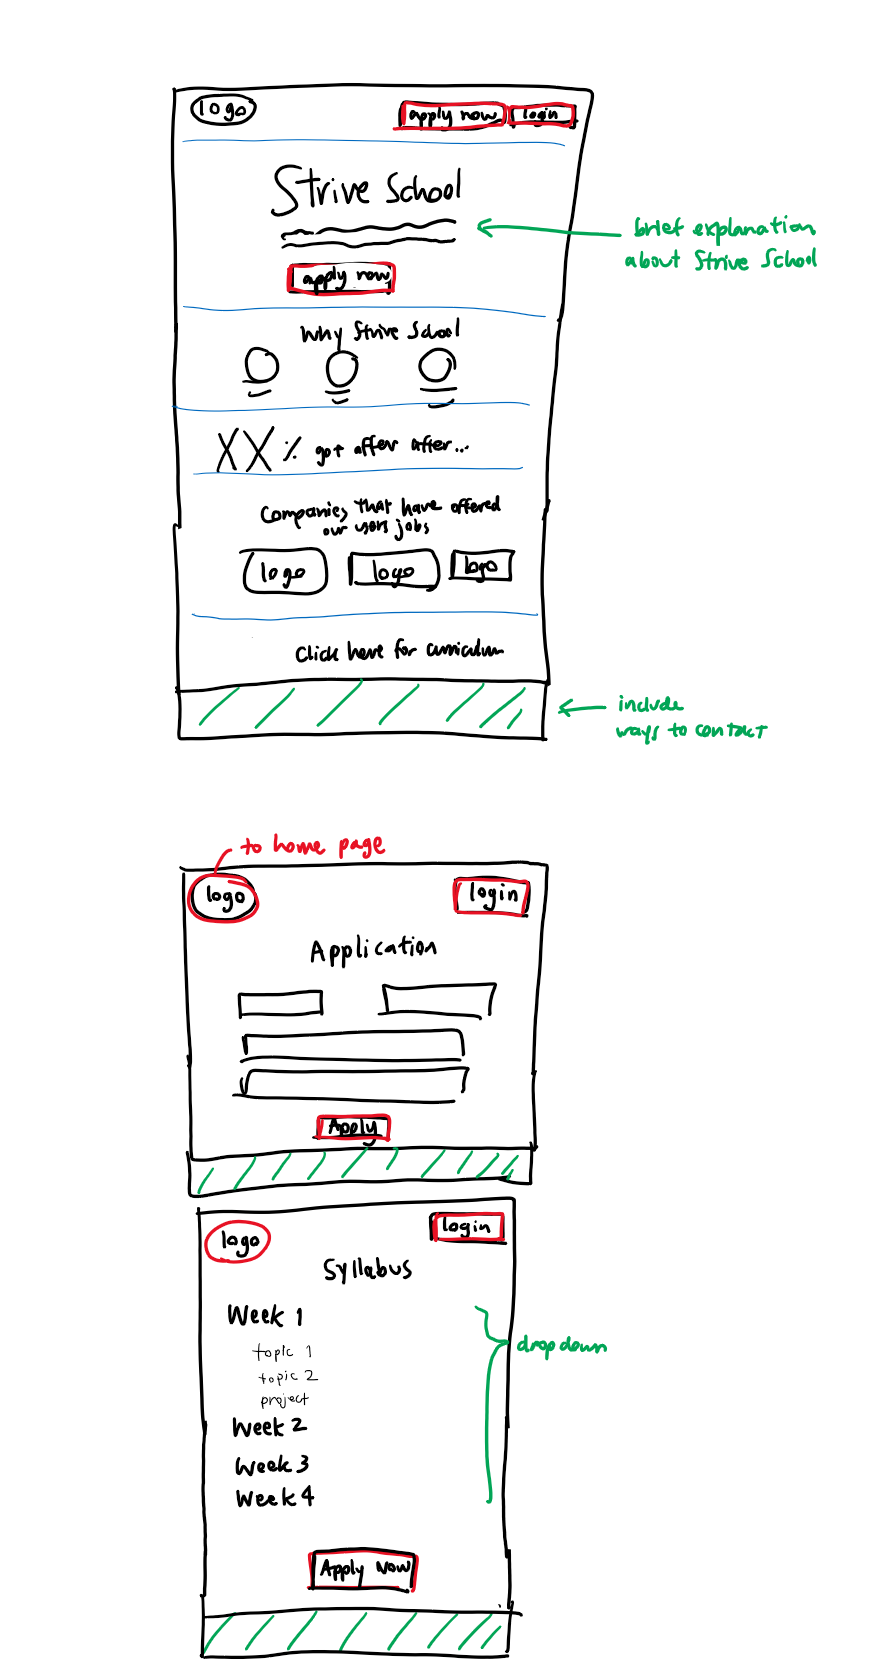 logo
apply now
login
Strive School
brief explanation
about Strive School
apply now
Why Strive School
XX % got offer after...
Companies that have offered
our users jobs
logo
logo
logo
Click here for curriculum
include
ways to contact
to home page
logo
login
Application
Apply
logo
login
Syllabus
Week 1
topic 1
topic 2
project
dropdown
Week 2
Week 3
Week 4
Apply Now